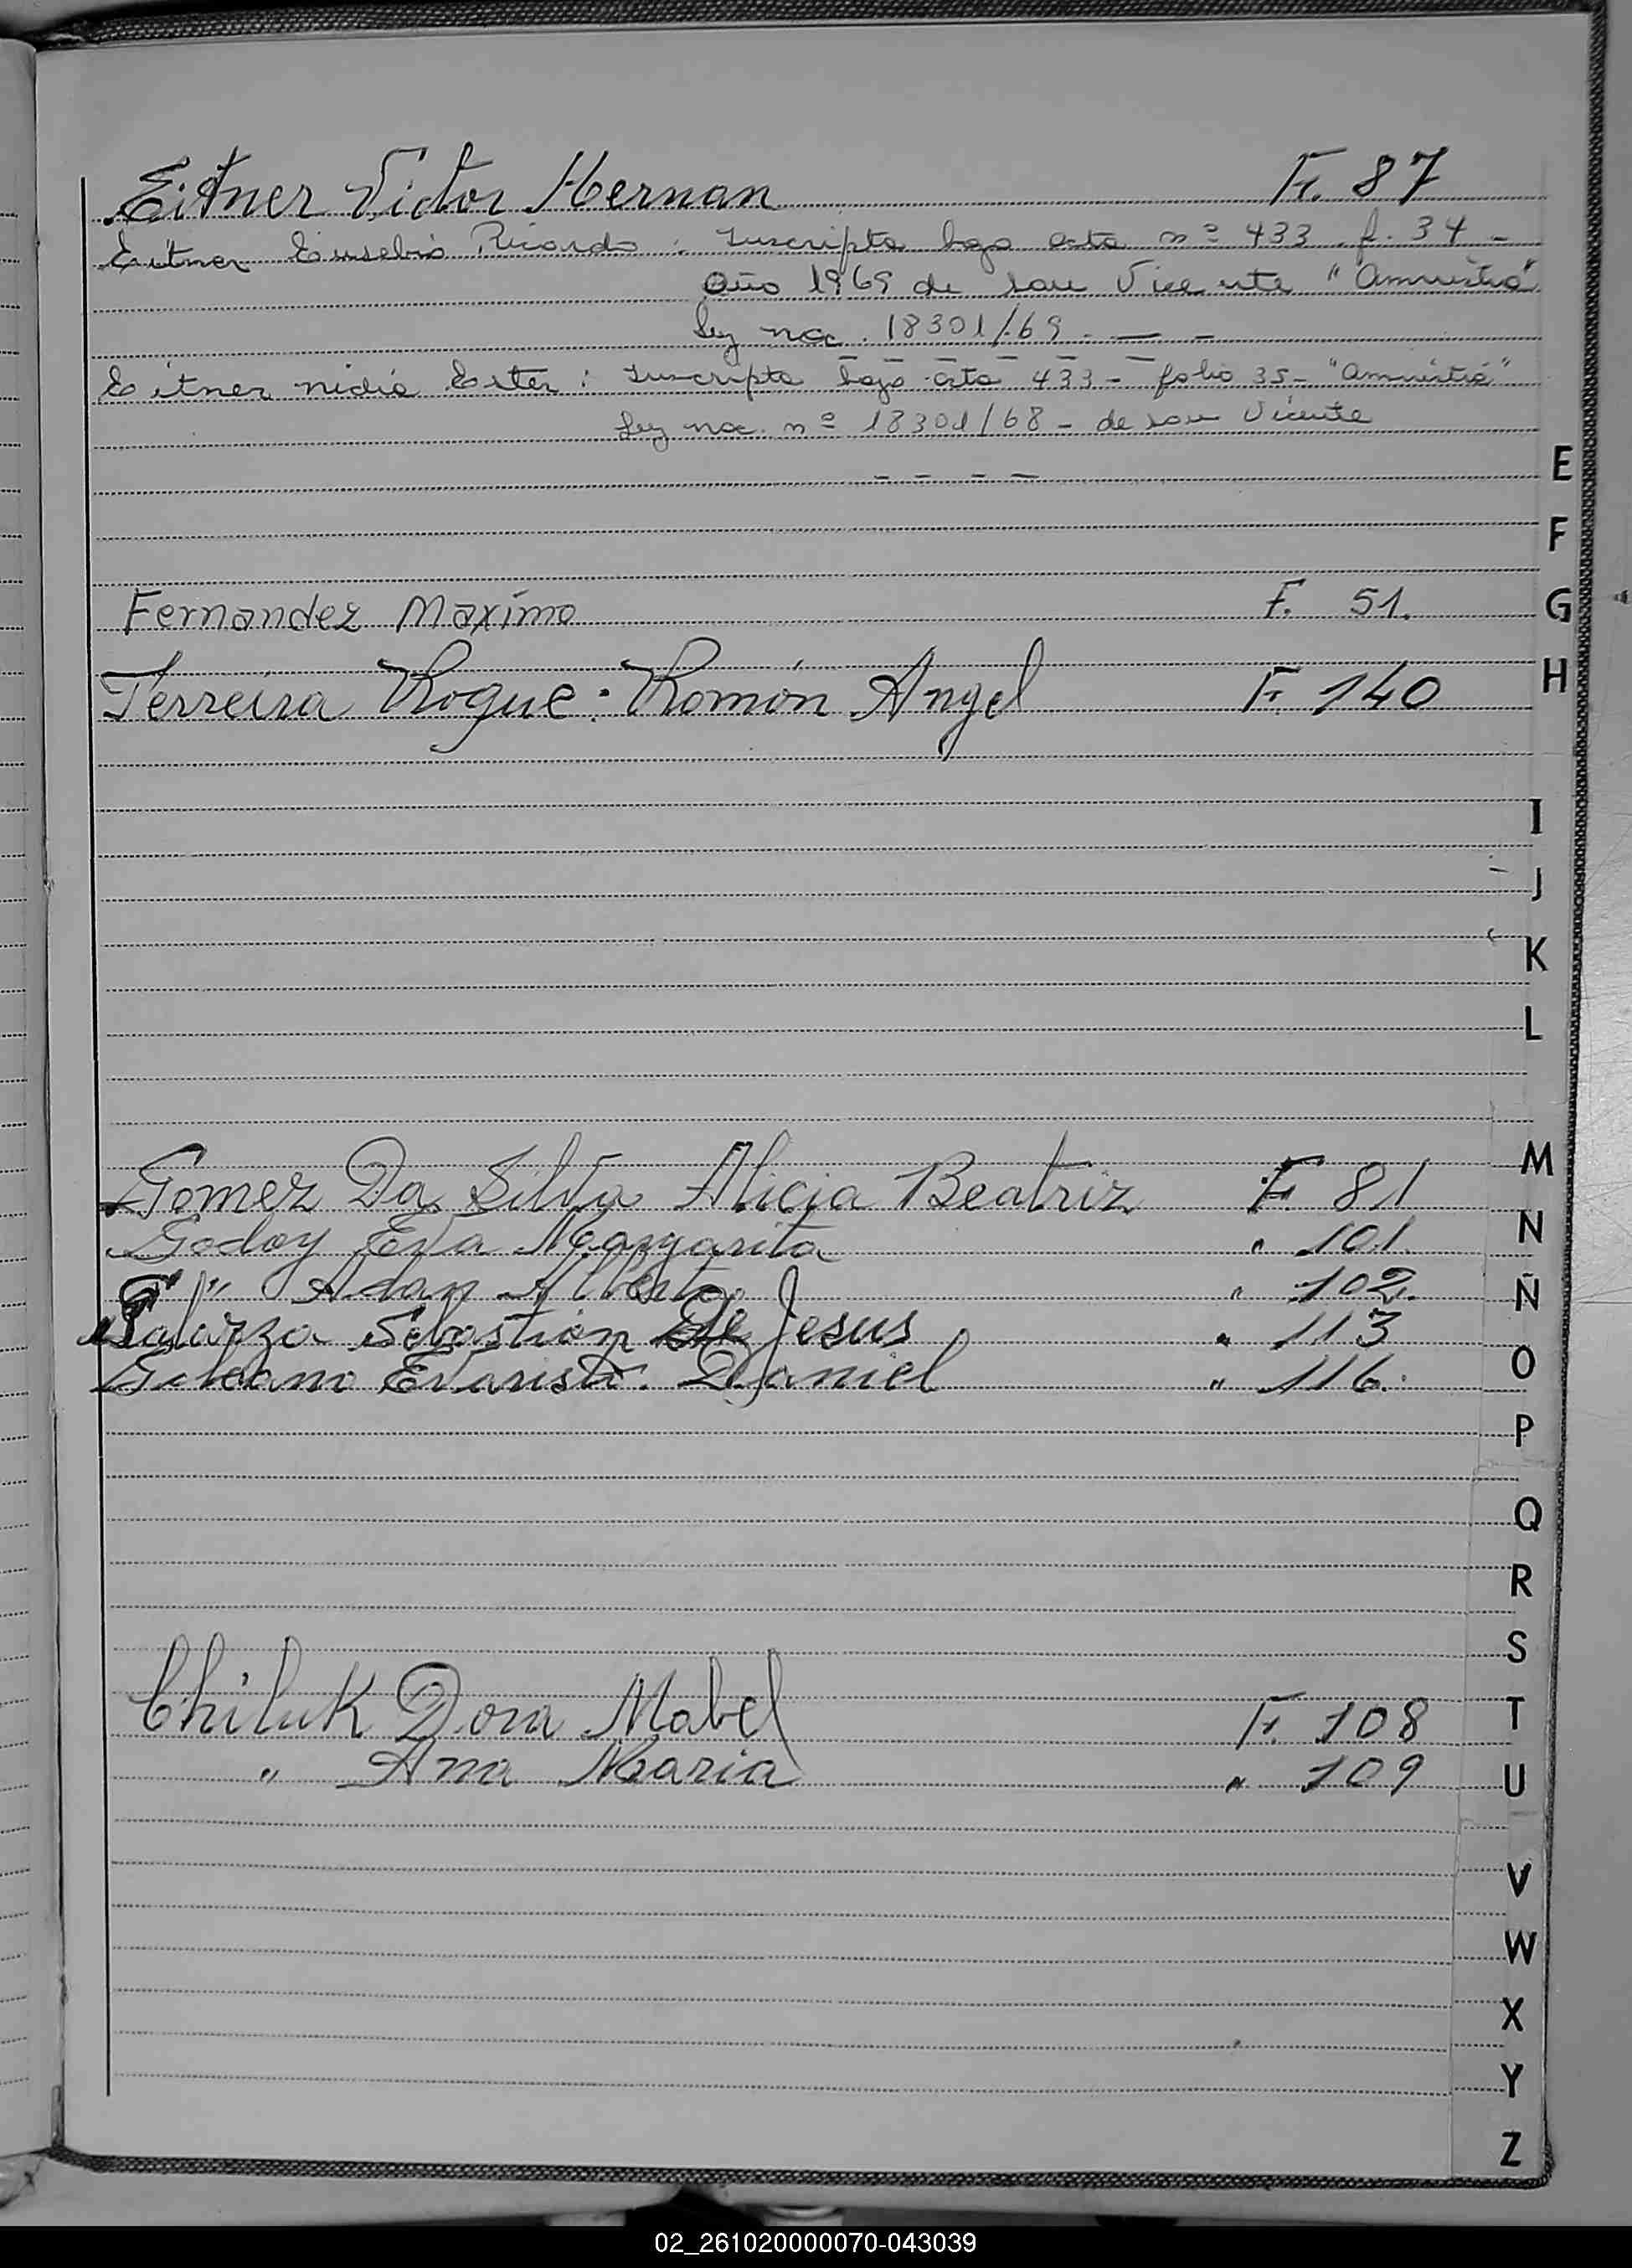 Eitner Victor Hernan F. 87
Eitner Eusebio Ricardo : Inscripta bajo acta nº 433 . f. 34 -
Año 1969 de san Vicente "Amnistia"
Ley nac. 18301/69 . — -
Eitner nidia Ester : Inscripta bajo acta 433 - folio 35 - "Amnistia"
Ley nac. nº 18301/68 - de san Vicente
- - - -
E
F
Fernandez Maximo F. 51.
G
Ferreira Roque . Román Angel F. 140
H
I
J
K
L
Gomez Da Silva Alicia Beatriz F. 81
M
Godoy Eva Margarita " 101.
N
" Adan Alberto " 102.
Ñ
Galarza Sebastian De Jesus " 113
Evaristo. Daniel " 116.
O
P
Q
R
S
Chiluk Dora Mabel F. 108
T
" Ana Maria " 109
U
V
W
X
Y
Z
02_261020000070-043039